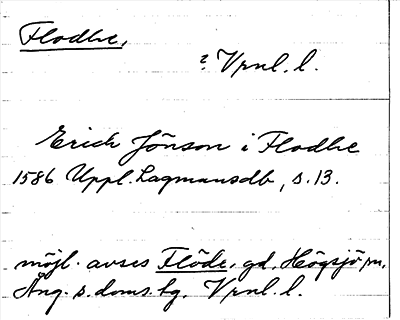 Flodhe,
? Vrnl. l.
Erich Jönson i Flodhe
1586 Uppl. Lagmansdb, s. 13.
möjl. avses Flöde, gd, Högsjö sn,
Ång. s. doms. hg. Vrnl. l.